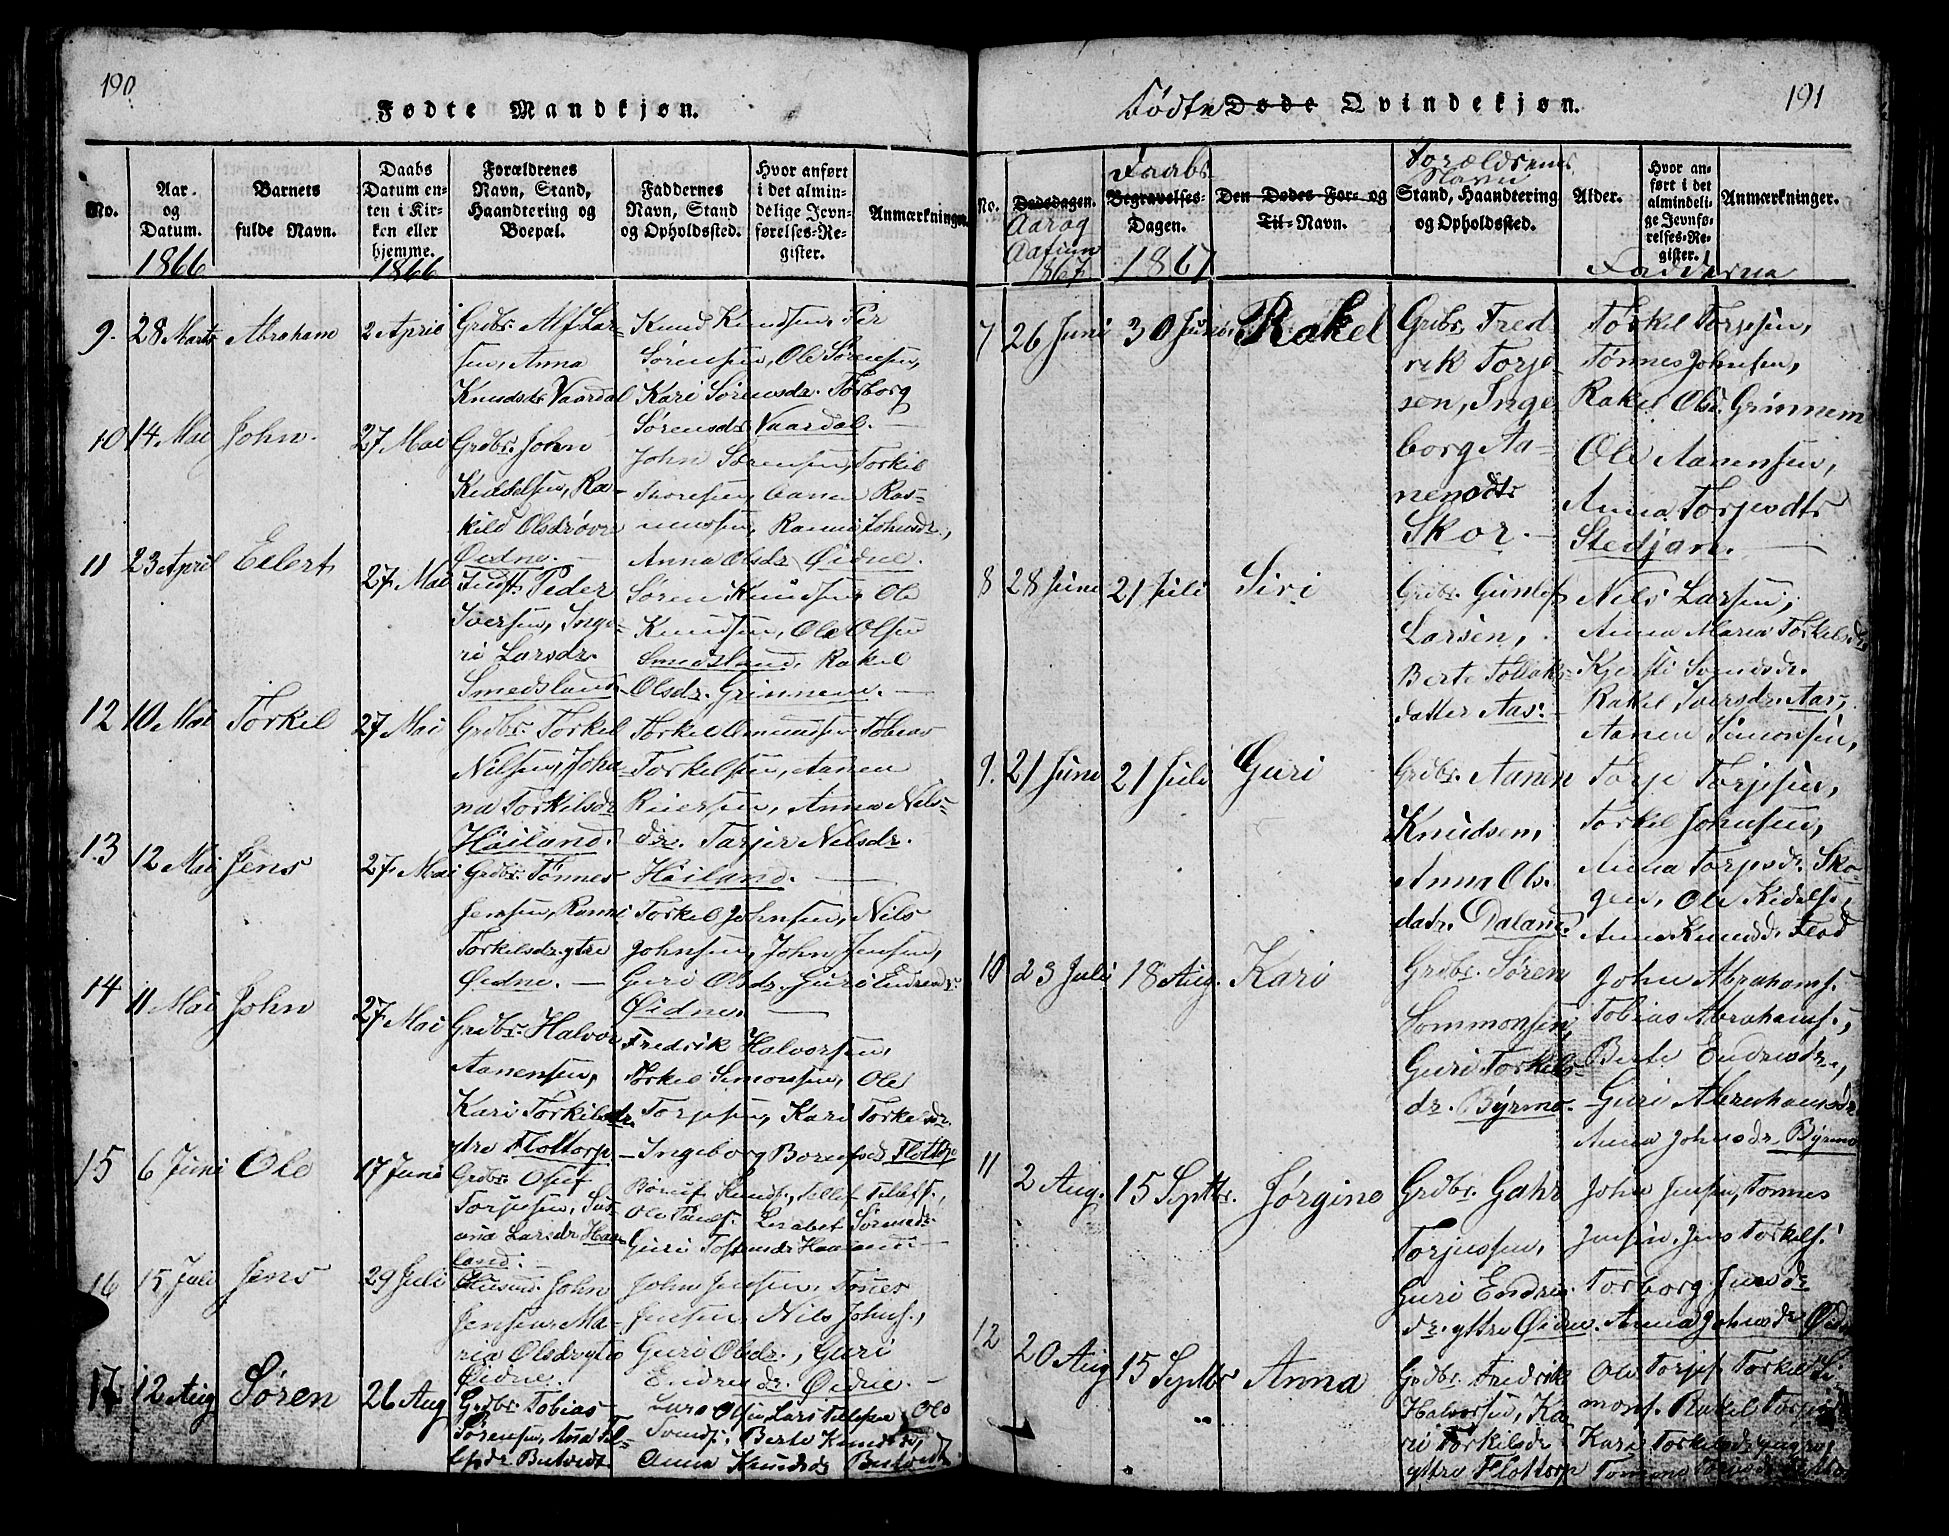 190
Fødte Mandkjøn.
No.
Aar og Datum.
1866
Barnets fulde Navn.
Daabs Datum enten i Kirken eller hjemme.
1866
Forældrenes Navn, Stand, Haandtering og Boepæl.
Faddernes Navn, Stand og Opholdssted.
Hvor anført i det almindelige Jevnførelses-Register.
Anmærkninger
9. 28 Marts Abraham 2 April
Grdbr. Alf Larsen, Anna
Knudsdr Vaardal
Knud Knudsen, Per
Sørensen, Ole Sørensen,
Kari Sørensdr. Torborg
Sørensdr Vaardal.
10 14 Mai John. 27 Mai
Grdbr. John
Øidne.
John Sørensen, Torkel
Anna Olsdr Øidne.
11 23 April Eilert 27 Mai
Peder
Iversen, Inge-
ri Larsdr.
Smedsland
Søren Knudsen, Ole
Knudsen, Ole Olsen
Smedsland, Rakel
Olsdr. Grinnem.
12 10 Mai Torkel 27 Mai
Grdbr. Torkel
Nilsen, Joha-
na Torkilsdr
Høiland.
Torkel Omundsen Tobias
Torkelsen, Aanen
Reiersen, Anna Nils-
dr. Nilsdr.
Høiland.
13 12 Mai Jens 27 Mai
Grdbr. Tønnes
Jensen, Ranni
Torkilsdr. ytre
Øidne.
Torkel Johnsen, Nils
Johnsen, John Jensen,
Guri Olsdr. Guri Endresdr.
Øidne.
14 11 Mai John 27 Mai
Grdbr. Halvor
Aanensen,
Kari Torkilsdr.
ytre Flottorp
Fredrik Halvorsen,
Torkel Simonsen, Ole
Torjesen, Kari Torkelsdr.
Ingeborg Flottorp
15 6 Juni Ole 17 Juni
Grdbr. Osuf
Torjusen, Su-
ana Larsdr Haa-
land.
Lisabet Sørensdr.
Guri Haaland.
16 15 Juli Jens 29 Juli
Husmd. John
Jensen Ma-
ria Olsdr ytre
Øidne.
John Jensen, Tønes
Jensen, Nils Johns.,
Guri Olsdr., Guri
Endresdr. Øidne.
17 12 Aug Søren 26 Aug
Grdbr. Tobias
Sørensen, Ana
Lars Olsen, Lars Tellefsen, Ole
Svends. Berte Knudsdr,
Anna Knudsdr
191
Fødte Døde Qvindekjøn.
No.
Dødsdagen.
Aar og Datum
1867
Daabs
Begravelses-Dagen.
1867
Den Dødes For- og Til-Navn.
Forældrenes Navn
Stand, Haandtering og Opholdssted.
Alder.
Hvor anført i det almindelige Jevnførelses-Register.
Anmærkninger.
Fadderne
7 26 Juni 30 Juni Rakel
Grdbr. Fred-
rik Torje-
sen, Inge-
borg Aa-
nensdtr
Skor.
Torkel Torjesen,
Tønnes Johnsen,
Rakel Olsd. Grinnem
Ole Aanensen,
Anna Torjesdtr
Stedjan.
8 28 Juni 21 Juli Siri
Grdbr. Gunlef
Larsen,
Berte Tollaks-
datter Aas.
Nils Larsen,
Anna Maria Torkelsdr
Kjersti Svendsdr.
Rakel Iversdr. Aas,
Aanen Simonsen,
9. 21 Juni 21 Juli Guri
Grdbr. Aanen
Knudsen,
Anna Ols-
datr. Daland.
Torje Torjesen,
Torkel Johnsen,
Anna Torjesdr Sko-
gen, Ole Kidels.,
Anna Knudsd. Flod
10 23 Juli 18 Aug. Kari
Grdbr. Søren
Sommonsen,
Guri Torkels-
dr. Byrmo.
John Abrahams.
Tobias Abrahams.,
Berte Endresdr.,
Guri Abrahamsdr
Anna Johnsdr. Byrmo
11 2 Aug. 15 Septbr. Jørgine
Grdbr. Gahr
Torjussen,
Guri Endres-
dr. yttre Øidne.
John Jensen, Tønnes
Jensen, Jens Torkels.
Torborg Jensdr
Anna Johnsdr Øidne
12 20 Aug 15 Septbr Anna
Grdbr. Fredrik
Halvorsen, Ka-
ri Torkilsdr
yttre Flottorp
Ole Torjes. Torkel Si-
mons. Rakel
Kari Torkilsdr